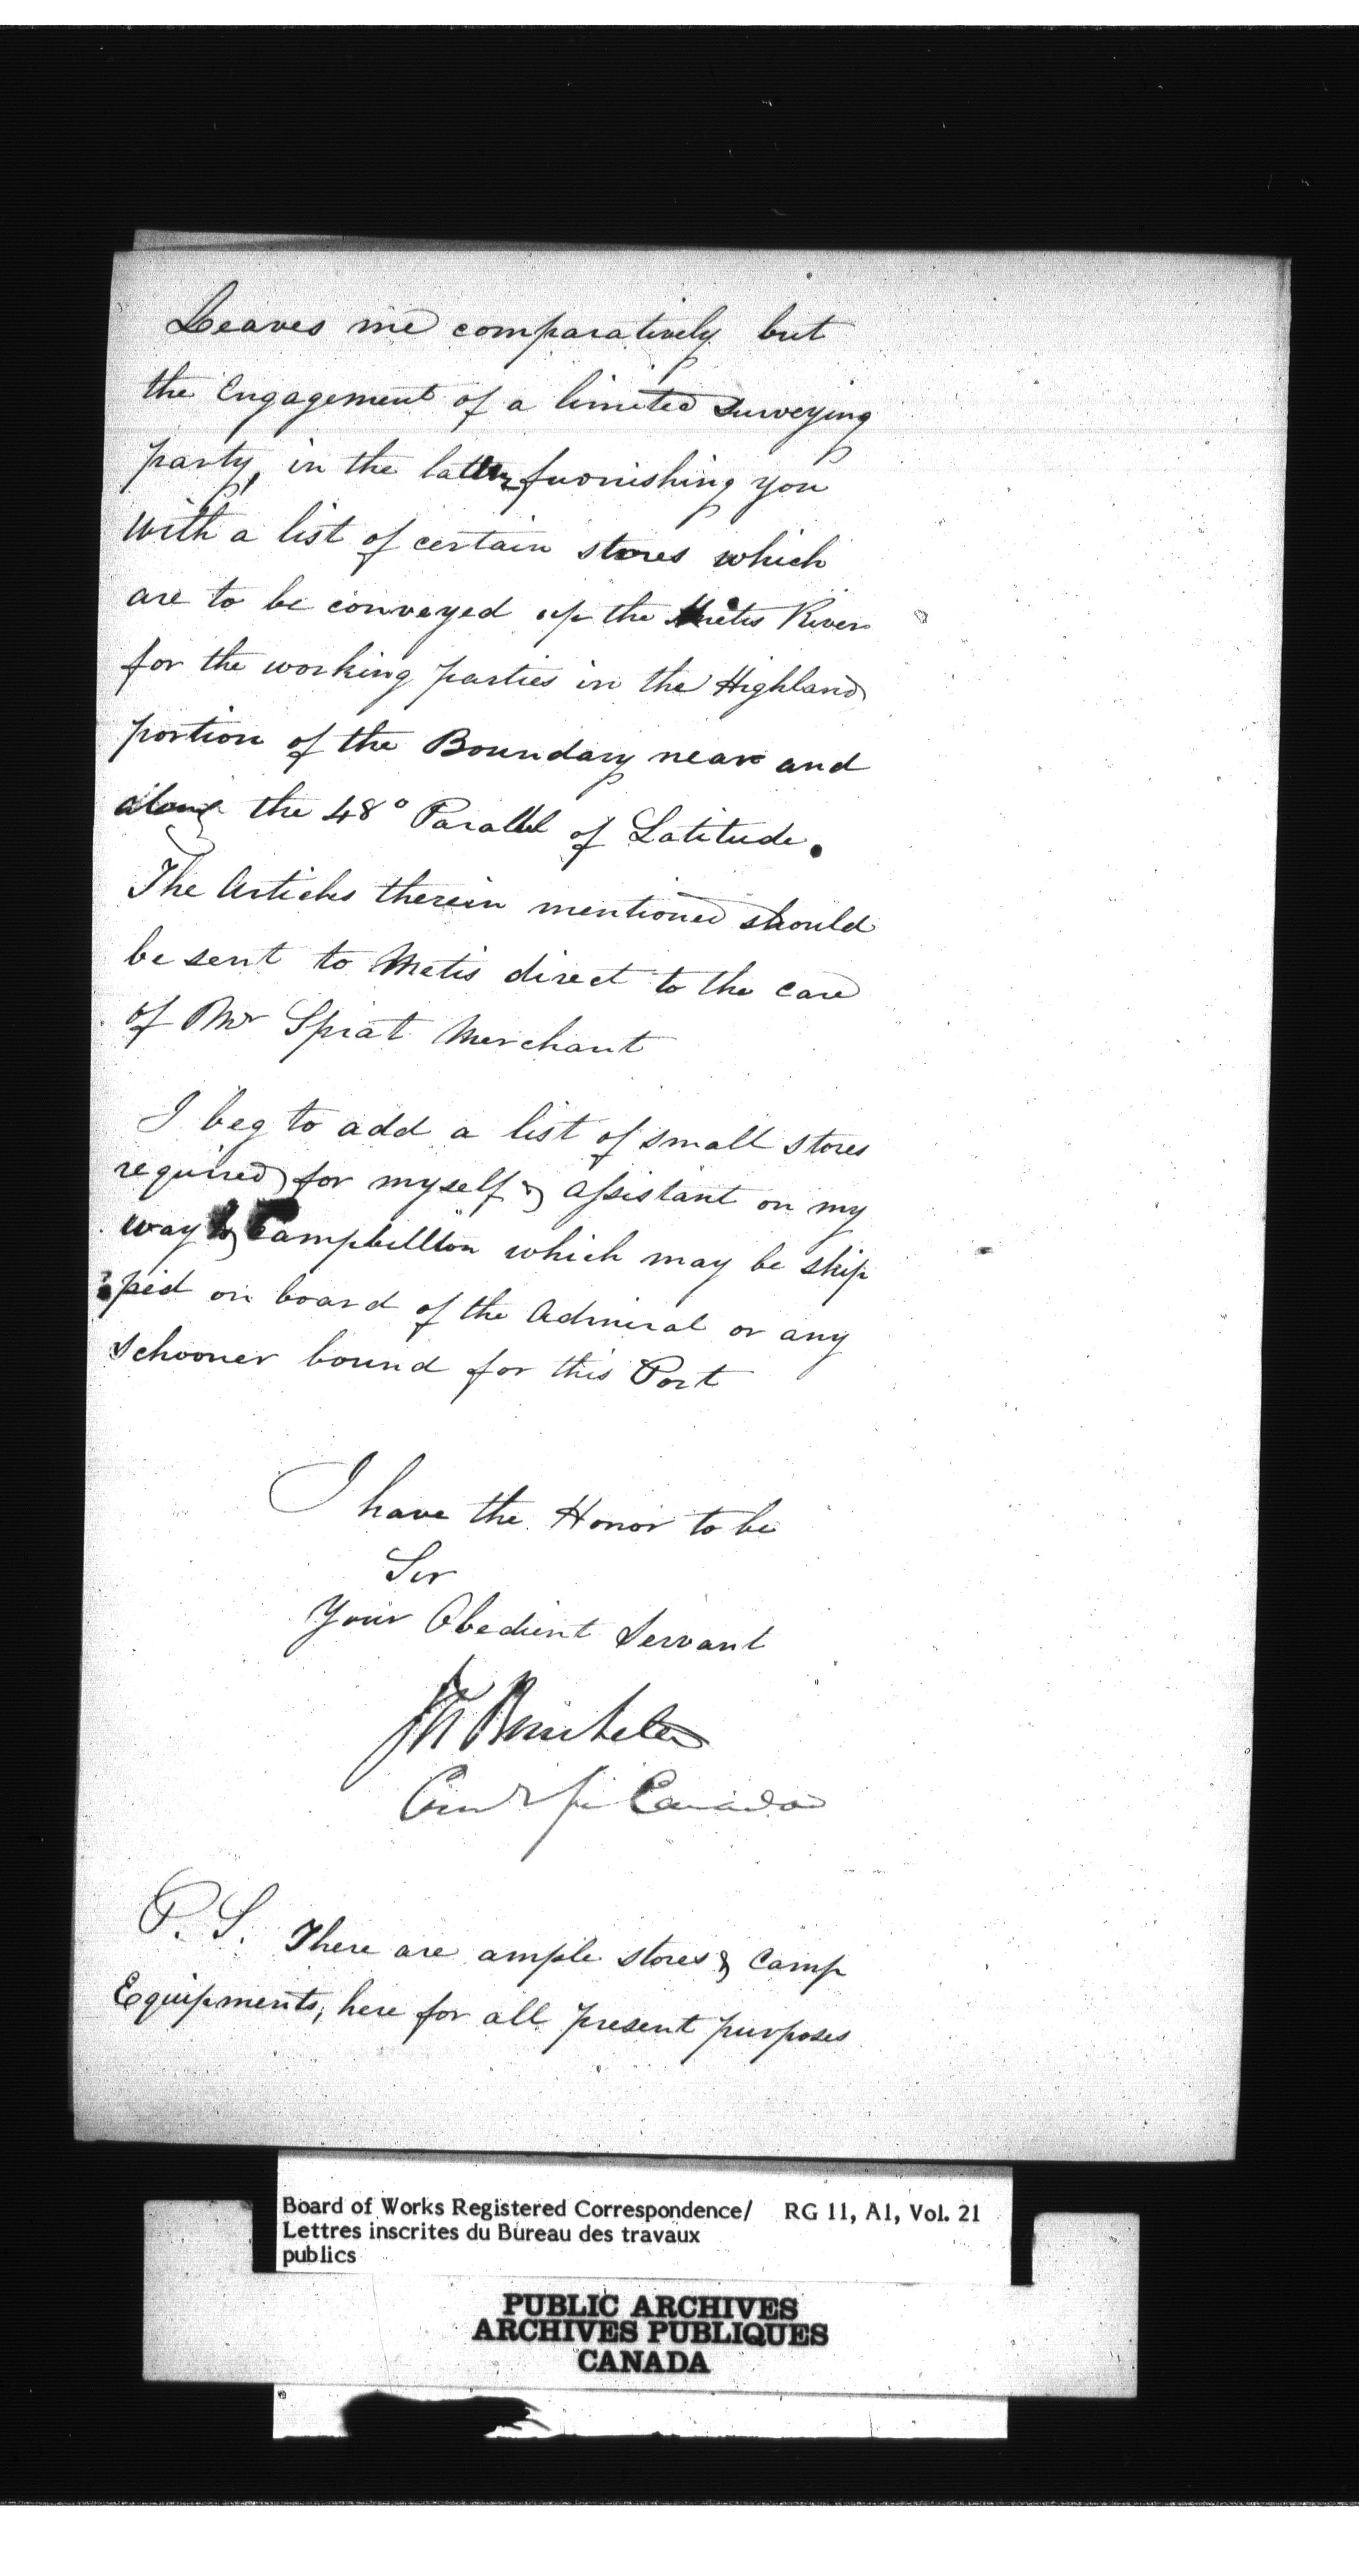 Leaves me comparatively but
the Engagement of a limited Surveying
party, in the latter furnishing you
with a list of certain stores which
are to be conveyed up the Metis River
for the working parties in the Highland
portion of the Boundary near and
along the 48° Parallel of Latitude.
The Articles therein mentioned should
be sent to Metis direct to the care
of Mr Sprat Merchant
I beg to add a list of small stores
required for myself & Assistant on my
way to Campbellton which may be ship
ped on board of the Admiral or any
schooner bound for this Port
I have the Honor to be
Sir
Your Obedient Servant
Canada
P. S. There are ample stores & Camp
Equipments, here for all present purposes
Board of Works Registered Correspondence/ RG 11, A1, Vol. 21
Lettres inscrites du Bureau des travaux
publics
PUBLIC ARCHIVES
ARCHIVES PUBLIQUES
CANADA